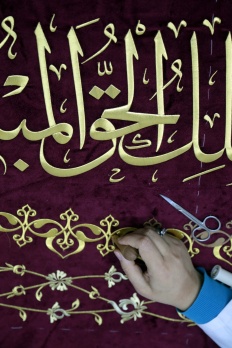 لملك الحق المبـ